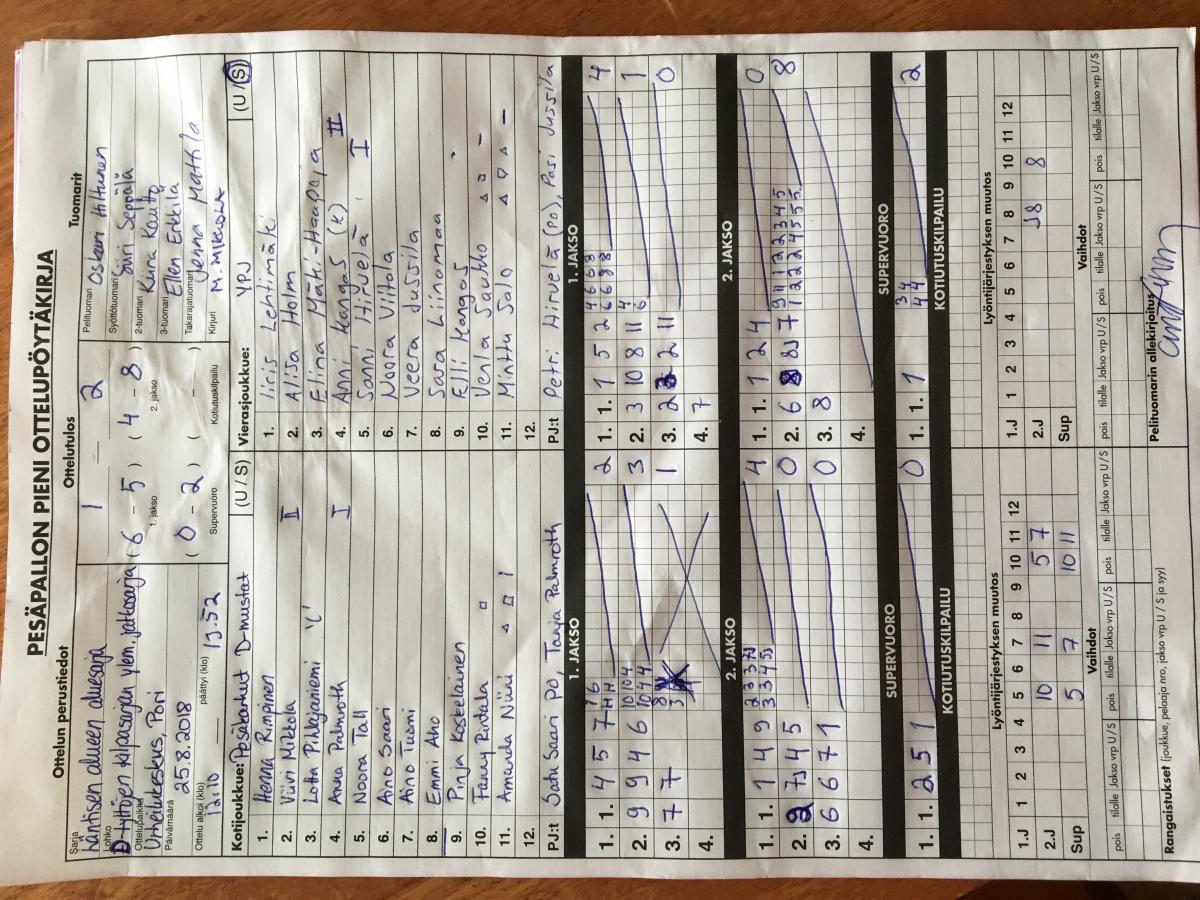 PESÄPALLON PIENI OTTELUPÖYTÄKIRJA
Ottelun perustiedot
Sarja
Läntisen alueen aluesarja
Lohko
D-tyttöjen kilpasarjan ylem. jatkosarja
Ottelupaikka
Urheilukeskus, Pori
Päivämäärä
25.8.2018
Ottelu alkoi (klo) päättyi (klo)
12.10 13.52
Ottelutulos
1 – 2
( 6 – 5 ) ( 4 – 8 )
1. jakso 2. jakso
( 0 – 2 ) ( – )
Supervuoro Kotiutuskilpailu
Tuomarit
Pelituomari Oskari Hiltunen
Syöttötuomari Siiri Seppälä
2-tuomari Kiira Kautto
3-tuomari Ellen Erkkilä
Takarajatuomari Jenna Mattila
Kirjuri M. Mikkola
Kotijoukkue: Pesäkarhut D-mustat (U / S)
1. Henna Rimpinen
2. Viivi Nikkola II
3. Lotta Pihlajaniemi
4. Anna Palmroth I
5. Noora Tall
6. Aino Saari
7. Aino Tuomi
8. Emmi Aho
9. Pinja Koskelainen
10. Fanny Rintala
11. Amanda Niini
12.
PJ:t Satu Saari PO, Tanja Palmroth
Vierasjoukkue: YPJ (U / S)
1. Iiris Lehtimäki
2. Alisa Holm
3. Elina Mäki-Haapoja
4. Anni Kangas (k) II
5. Sanni Hirvelä I
6. Noora Viitala
7. Veera Jussila
8. Sara Liinamaa
9. Elli Kangas
10. Venla Sauhko
11. Minttu Salo
12.
PJ:t Petri Hirvelä (po), Pasi Jussila
1. JAKSO
1. 1. 4 5 7 2
2. 9 9 4 6 3
3. 7 7 1
4.
1. JAKSO
1. 1. 1 5 2 4
2. 3 10 8 11 1
3. 2 2 11 0
4. 7
2. JAKSO
1. 1. 1 4 9 4
2. 7J 4 5 0
3. 6 6 7 1 0
4.
2. JAKSO
1. 1. 1 2 4 0
2. 6 8J 7 8
3. 8
4.
SUPERVUORO
1. 1. 2 5 1 0
SUPERVUORO
1. 1. 1 2
KOTIUTUSKILPAILU
KOTIUTUSKILPAILU
Lyöntijärjestyksen muutos
1.J 1 2 3 4 5 6 7 8 9 10 11 12
2.J 10 11 5 7
Sup 5 7 10 11
Lyöntijärjestyksen muutos
1.J 1 2 3 4 5 6 7 8 9 10 11 12
2.J J8 8
Sup
Vaihdot
pois tilalle Jakso vrp U/S pois tilalle Jakso vrp U/S pois tilalle Jakso vrp U/S
Vaihdot
pois tilalle Jakso vrp U/S pois tilalle Jakso vrp U/S pois tilalle Jakso vrp U/S
Rangaistukset (joukkue, pelaaja nro, jakso vrp U / S ja syy)
Pelituomarin allekirjoitus